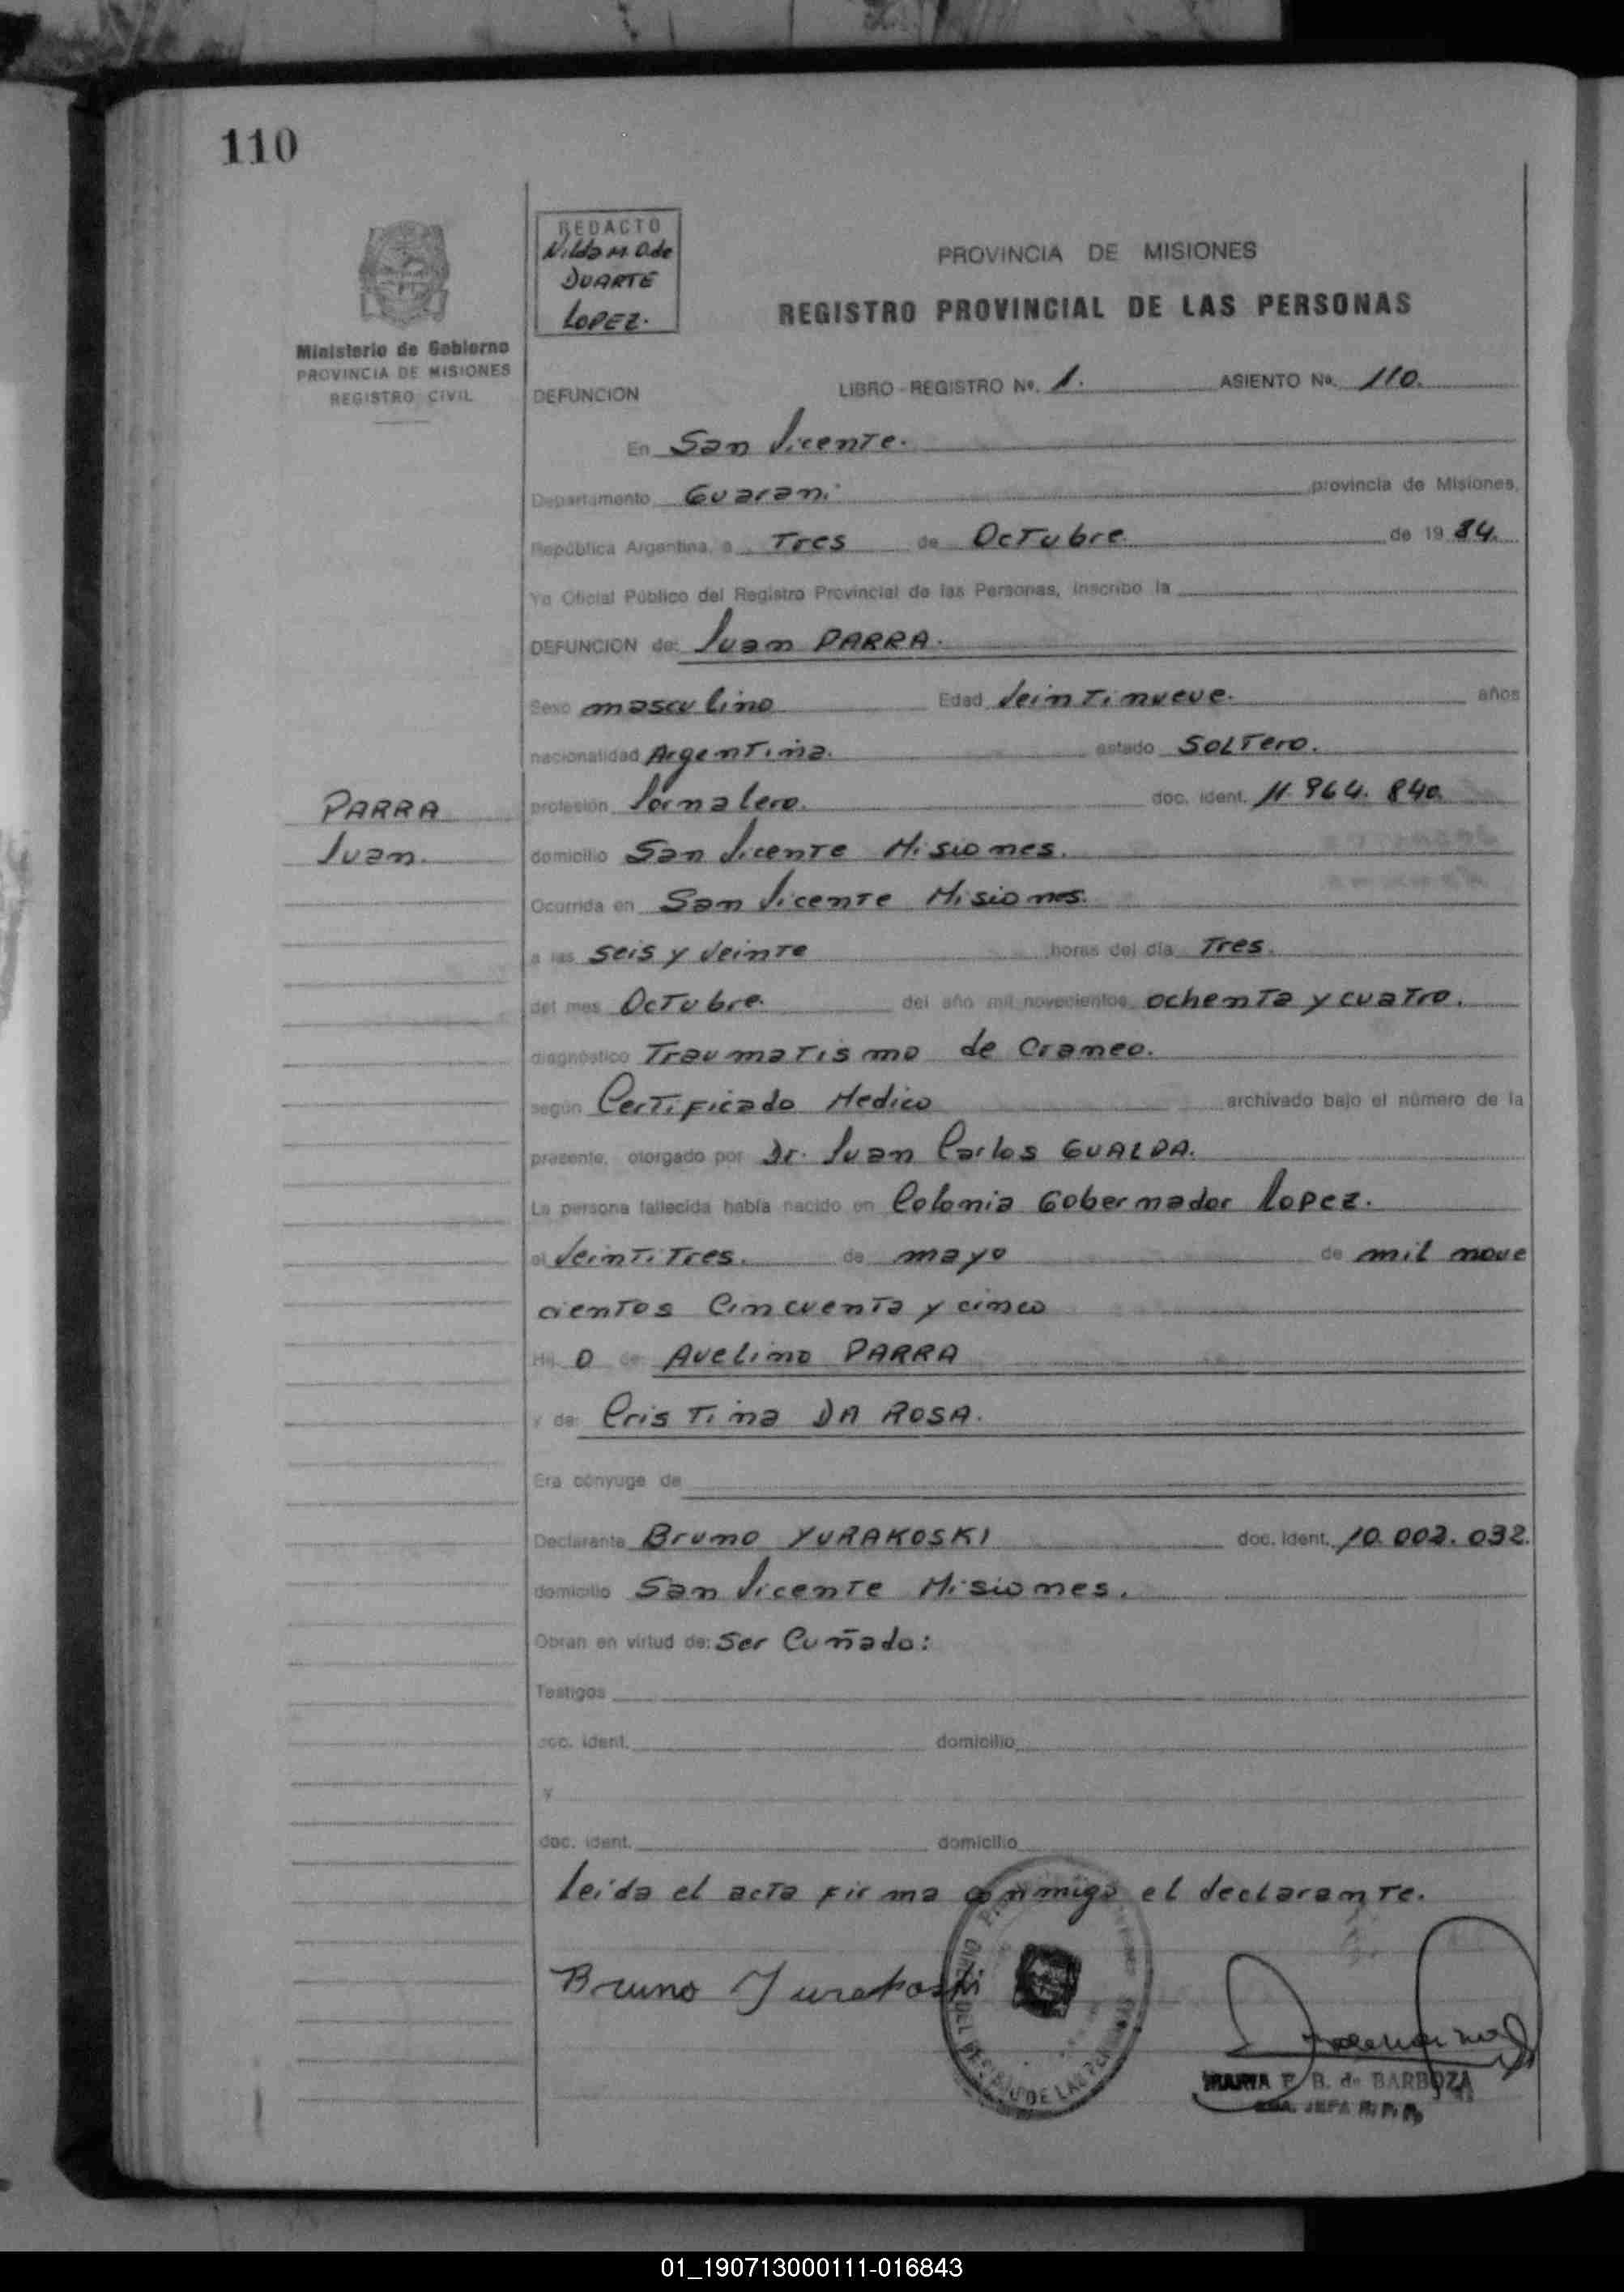 110
REDACTO
Nilda M. O. de
DUARTE
LOPEZ.
PROVINCIA DE MISIONES
REGISTRO PROVINCIAL DE LAS PERSONAS
Ministerio de Gobierno
PROVINCIA DE MISIONES
REGISTRO CIVIL
DEFUNCION LIBRO - REGISTRO No. 1. ASIENTO No. 110.
En San Vicente.
Departamento Guarani provincia de Misiones,
República Argentina, a Tres de Octubre. de 19 84.
Yo Oficial Público del Registro Provincial de las Personas, inscribo la
DEFUNCION de: Juan PARRA.
Sexo masculino Edad Veintinueve. años
nacionalidad Argentina. estado Soltero.
PARRA
Juan.
profesión Jornalero. doc. ident. 11.964.840.
domicilio San Vicente Misiones.
Ocurrida en San Vicente Misiones.
a las seis y Veinte horas del día Tres.
del mes Octubre. del año mil novecientos ochenta y cuatro.
diagnóstico Traumatismo de Craneo.
según Certificado Medico archivado bajo el número de la
presente, otorgado por Dr. Juan Carlos GUALDA.
La persona fallecida había nacido en Colonia Gobernador Lopez.
el Veintitres. de mayo de mil nove
cientos Cincuenta y cinco
Hij o de Avelino PARRA
y de: Cristina DA ROSA.
Era cónyuge de
Declarante Bruno YURAKOSKI doc. ident. 10.002.032.
domicilio San Vicente Misiones.
Obran en virtud de: Ser Cuñado:
Testigos
doc. ident. domicilio
y
doc. ident. domicilio
leida el acta firma conmigo el declarante.
Bruno Jurakoski
MARIA F. B. de BARBOZA
JEFA R. P. P.
01_190713000111-016843